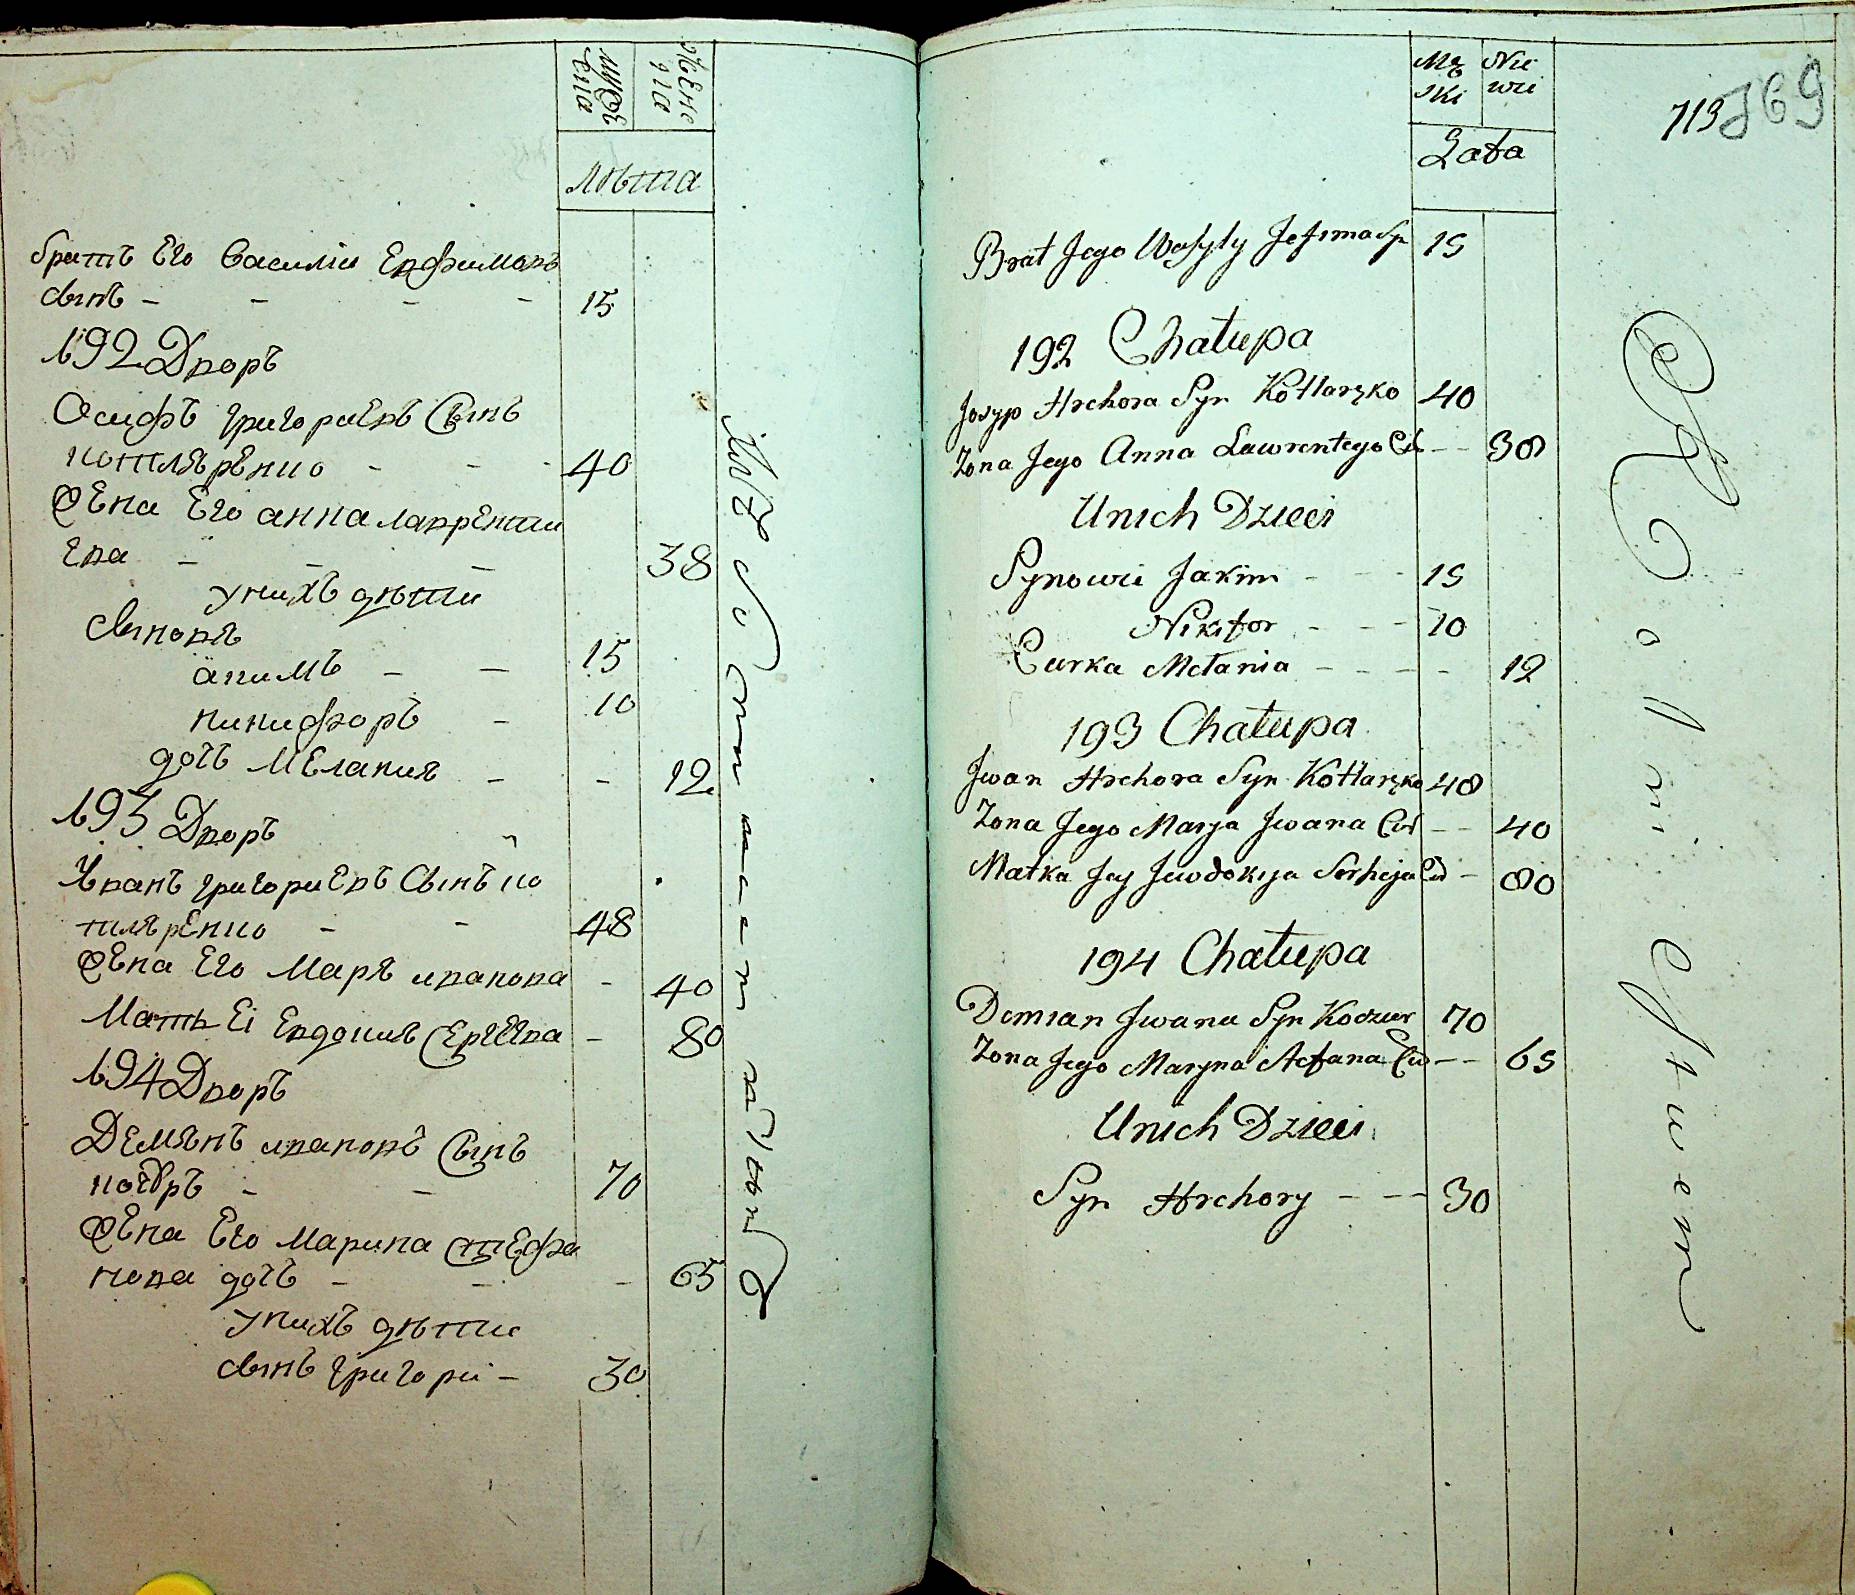 мужескa
женска
Лѣта
братъ Его Василiи Евфимовъ
Сынъ - - - - 15
192 Дворъ
Осифъ григориевъ Сынъ
котляренко - - - 40
Жена Его анна лаврентьи
ева - - - 38
у нихъ дѣти
Сыновя
якимъ - - 15
никифоръ - 10
дочъ Мелания - - 12
193 Дворъ
Иванъ григориевъ Сынъ ко
тляренко - - 48
Жена Его Маря иванова - 40
Мать Еi Евдокия Сергеева - 80
194 Дворъ
Демянъ ивановъ Сынъ
кочуръ - - 70
Жена Его Марина Стефа
нова дочъ - - - 65
у нихъ дѣти
Сынъ григори - 30
Męski
Niewci
Lata
713 769
Brat Jego Wasyly Jefima Sy 15
192 Chałupa
Josyp Hrehora Syn Kotlarzko 40
Żona Jego Anna Lawrentego Cór -- 38
Unich Dzieci
Synowie Jakim - - - 15
Nikifor - - - 10
Curka Melania - - - - 12
193 Chałupa
Jwan Hrehora Syn Kotlarzko 48
Żona Jego Marya Jwana Cur -- 40
Matka Jey Jewdokija Serheja Cu - 80
194 Chałupa
Demian Jwana Syn Koczur 70
Żona Jego Maryna Stefana Cu -- 65
Unich Dzieci
Syn Hrehory - -- 30